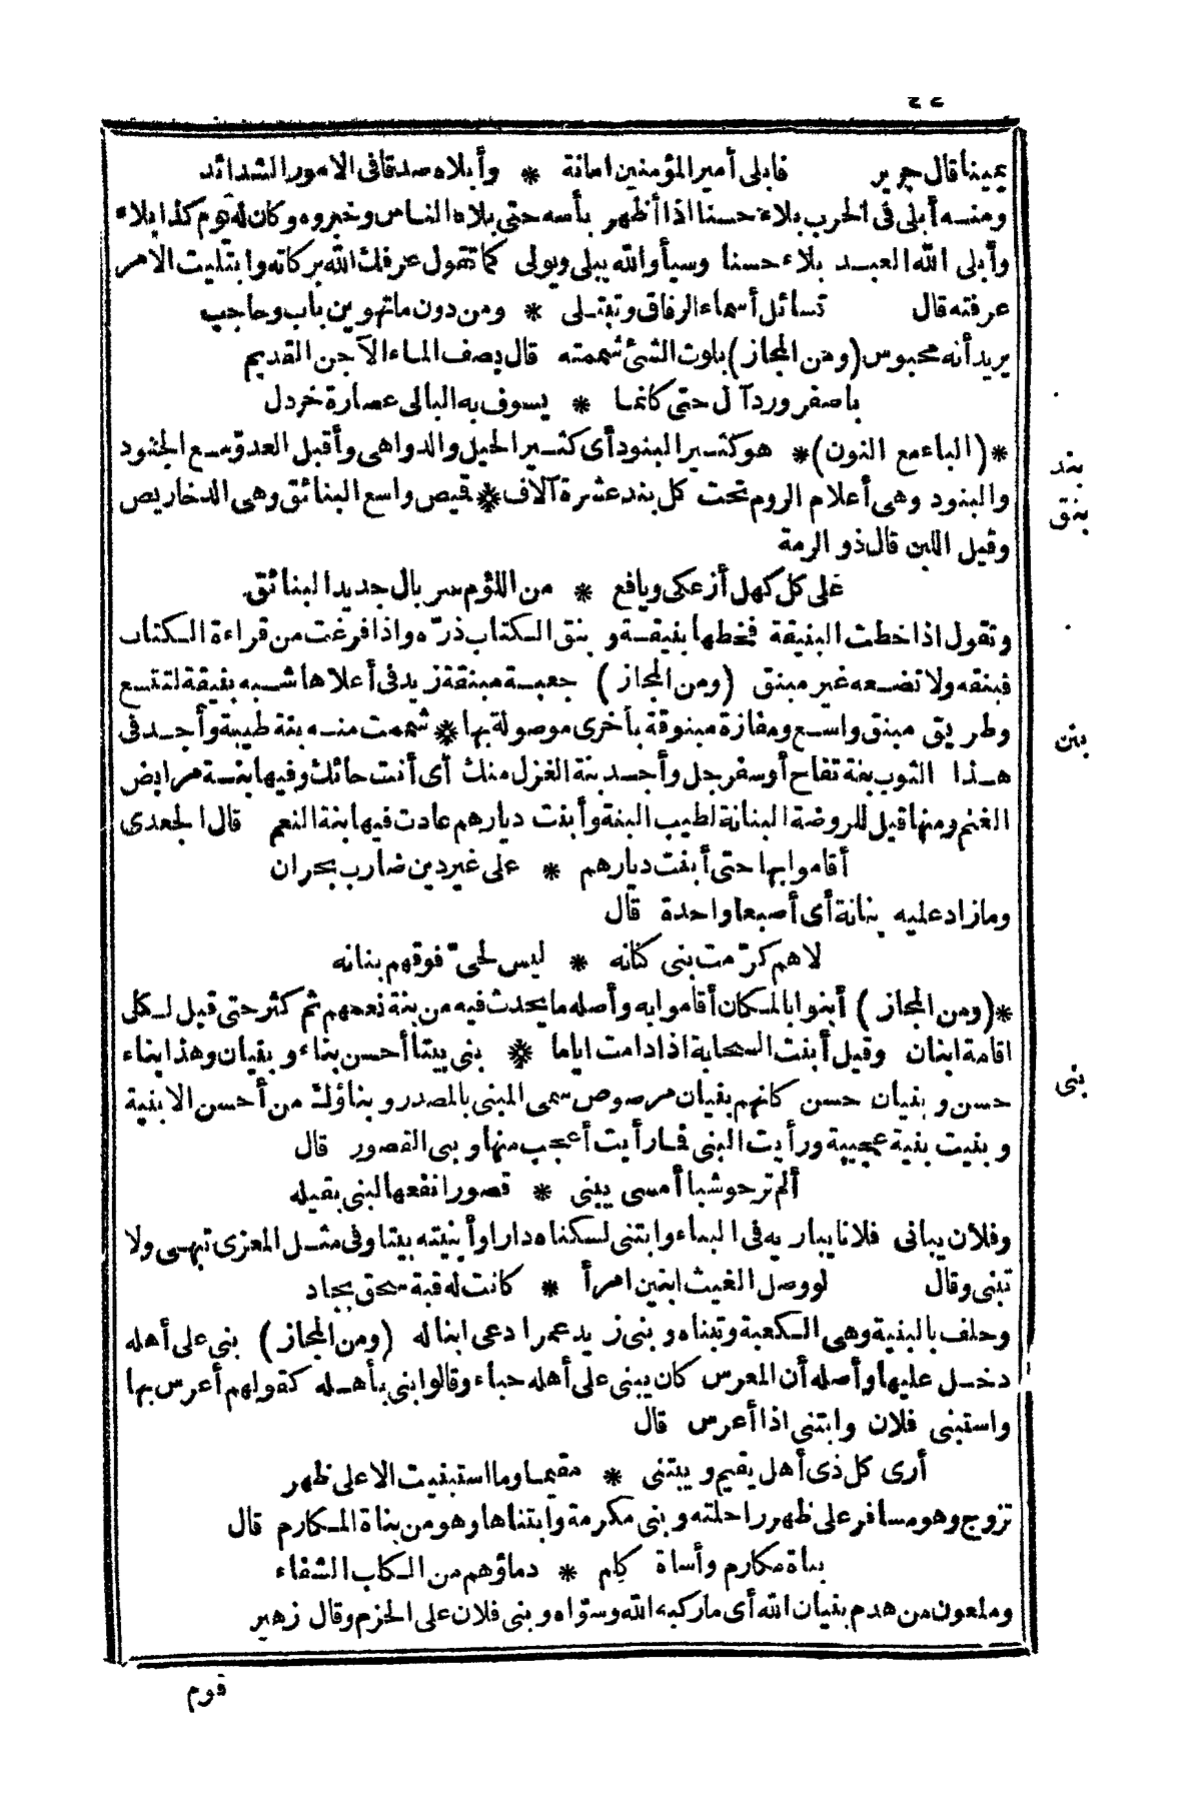 ٤٤
يمينا قال جرير فابلى أمير المؤمنين امانة * وأبلاه صدقا فى الامور الشدائد
ومنه أبلى فى الحرب بلاء حسنا اذا أظهر بأسه حتى بلاه الناس وخبروه وكان له يوم كذا بلاء
وأبلى الله العبد بلاء حسنا وسيأ والله يبلى ويولى كما تقول عرفك الله بركاته وابتليت الامر
عرفته قال تسائل أسماء الرفاق وتبتلى * ومن دون ما تهوين باب وحاجب
يريد أنه محبوس (ومن المجاز) بلوت الشئ شممته قال يصف الماء الآجن القديم
باصفر ورد آل حتى كأنما * يسوف به البالى عصارة خردل
*(الباء مع النون)* هو كثير البنود أى كثير الحيل والدواهى وأقبل العدو مع الجنود
والبنود وهى أعلام الروم تحت كل بند عشرة آلاف * قميص واسع البنائق وهى الدخاريص
وقيل اللبن قال ذو الرمة
على كل كهل أزعكى ويافع * من اللؤم سربال جديد البنائق
وتقول اذا خطت البنيقة فخطها بنيقة وبنق الكتاب ذره واذا فرغت من قراءة الكتاب
فبنقه ولا تضعه غير مبنق (ومن المجاز) جعبة مبنقة زيد فى أعلاها شبه بنيقة لتتسع
وطريق مبنق واسع ومفازة مبنوقة بأخرى موصولة بها * شممت منه بنة طيبة وأجد فى
هذا الثوب بنة تفاح أو سفرجل وأجد بنة الغزل منك أى أنت حائك وفيها بنة مرابض
الغنم ومنها قيل للروضة البنانة لطيب البنة وأبنت ديارهم عادت فيها بنة النعم قال الجعدى
أقاموا بها حتى أبنت ديارهم * على غير دين ضارب بجران
وما زاد عليه بنانة أى أصبعا واحدة قال
لاهم كرّمت بنى كنانه * ليس لحىّ فوقهم بنانه
*(ومن المجاز) أبنوا بالمكان أقاموا به وأصله ما يحدث فيه من بنة نعمهم ثم كثر حتى قيل لكل
اقامة ابنان وقيل أبنت السحابة اذا دامت اياما * بنى بيتا أحسن بناء وبنيان وهذا بناء
حسن وبنيان حسن كانهم بنيان مرصوص سمى المبنى بالمصدر وبناؤك من أحسن الابنية
وبنيت بنية عجيبة ورأيت البنى فما رأيت أعجب منها وبنى القصور قال
ألم تر حوشبا أمسى يبنى * قصورا نفعها لبنى بقيله
وفلان يبانى فلانا يباريه فى البناء وابتنى لسكناه دارا وأبنيته بيتا وفى مثل المعزى تبهى ولا
تبنى وقال لو وصل الغيث ابنين امرأ * كانت له قبة سحق بجاد
وحلف بالبنية وهى الكعبة وتبناه وبنى زيد عمرا دعى ابنا له (ومن المجاز) بنى على أهله
دخل عليها وأصله أن المعرس كان يبنى على أهله خباء وقالوا بنى بأهله كقولهم أعرس بها
واستبنى فلان وابتنى اذا أعرس قال
أرى كل ذى أهل يقيم ويبتنى * مقيما وما استبنيت الا على ظهر
تزوج وهو مسافر على ظهر راحلته وبنى مكرمة وابتناها وهو من بناة المكارم قال
بناة مكارم وأساة كلم * دماؤهم من الكلب الشفاء
وملعون من هدم بنيان الله أى ما ركبه الله وسوّاه وبنى فلان على الحزم وقال زهير
قوم
بند
بنق
بنن
بنى